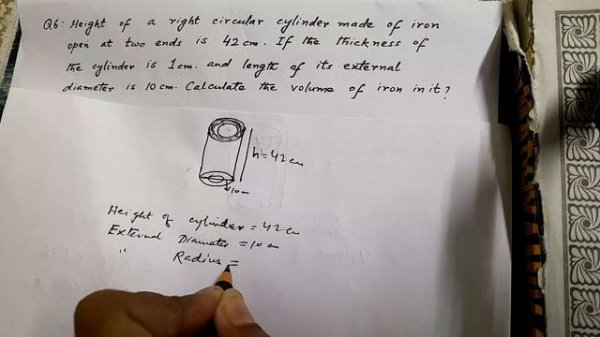 Q6: Height of a right circular cylinder made of iron
open at two ends is 42 cm. If the thickness of
the cylinder is 1cm. and length of its external
diameter is 10 cm. Calculate the volume of iron in it?
h=42 cm
10cm
Height of cylinder = 42 cm
External Diameter = 10 cm
" Radius =